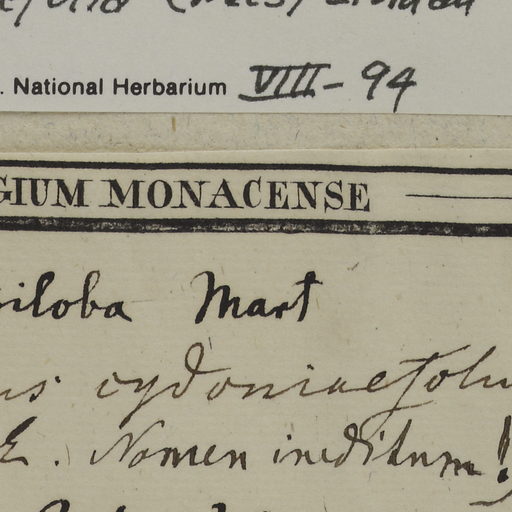 (Nees)
. National Herbarium VIII-94
GIUM MONACENSE
iloba Mart
us cydoniaefoliu
E. Nomen ineditum!